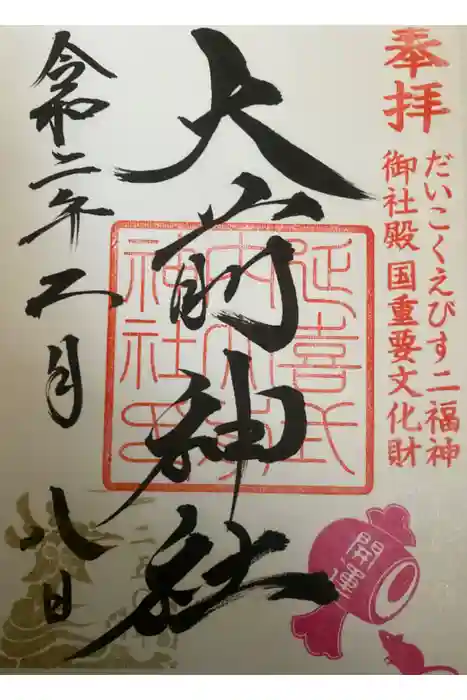 奉拝
だいこくえびす二福神
御社殿国重要文化財
大前神社
延喜式
神社
開運
令和二年二月
八日